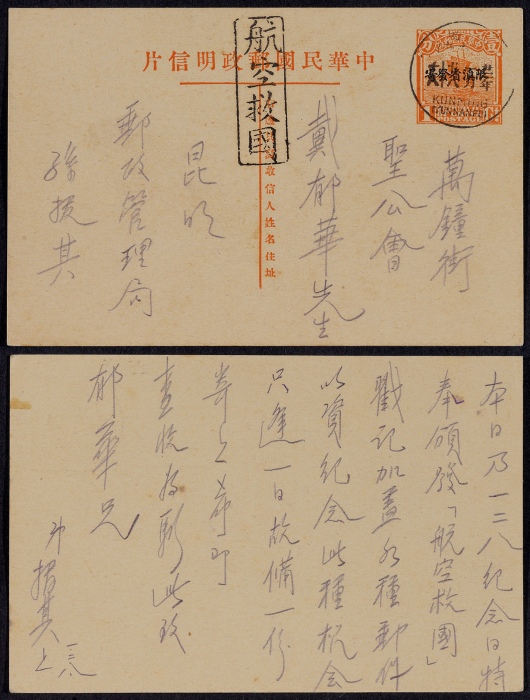 中華民國郵政明信片
航空救國
限滇省發寄
KUNMING
萬鐘街
聖公會
戴郁華先生
收信人姓名住址
昆明
郵政管理局
孫撰其
本日乃一二八紀念日特
奉頒發「航空救國」
戳記加蓋各種郵件
以資紀念此種机会
只逢一日故備一份
寄上希即
查收為盼此致
郁華兄
弟撰其上 一、二八